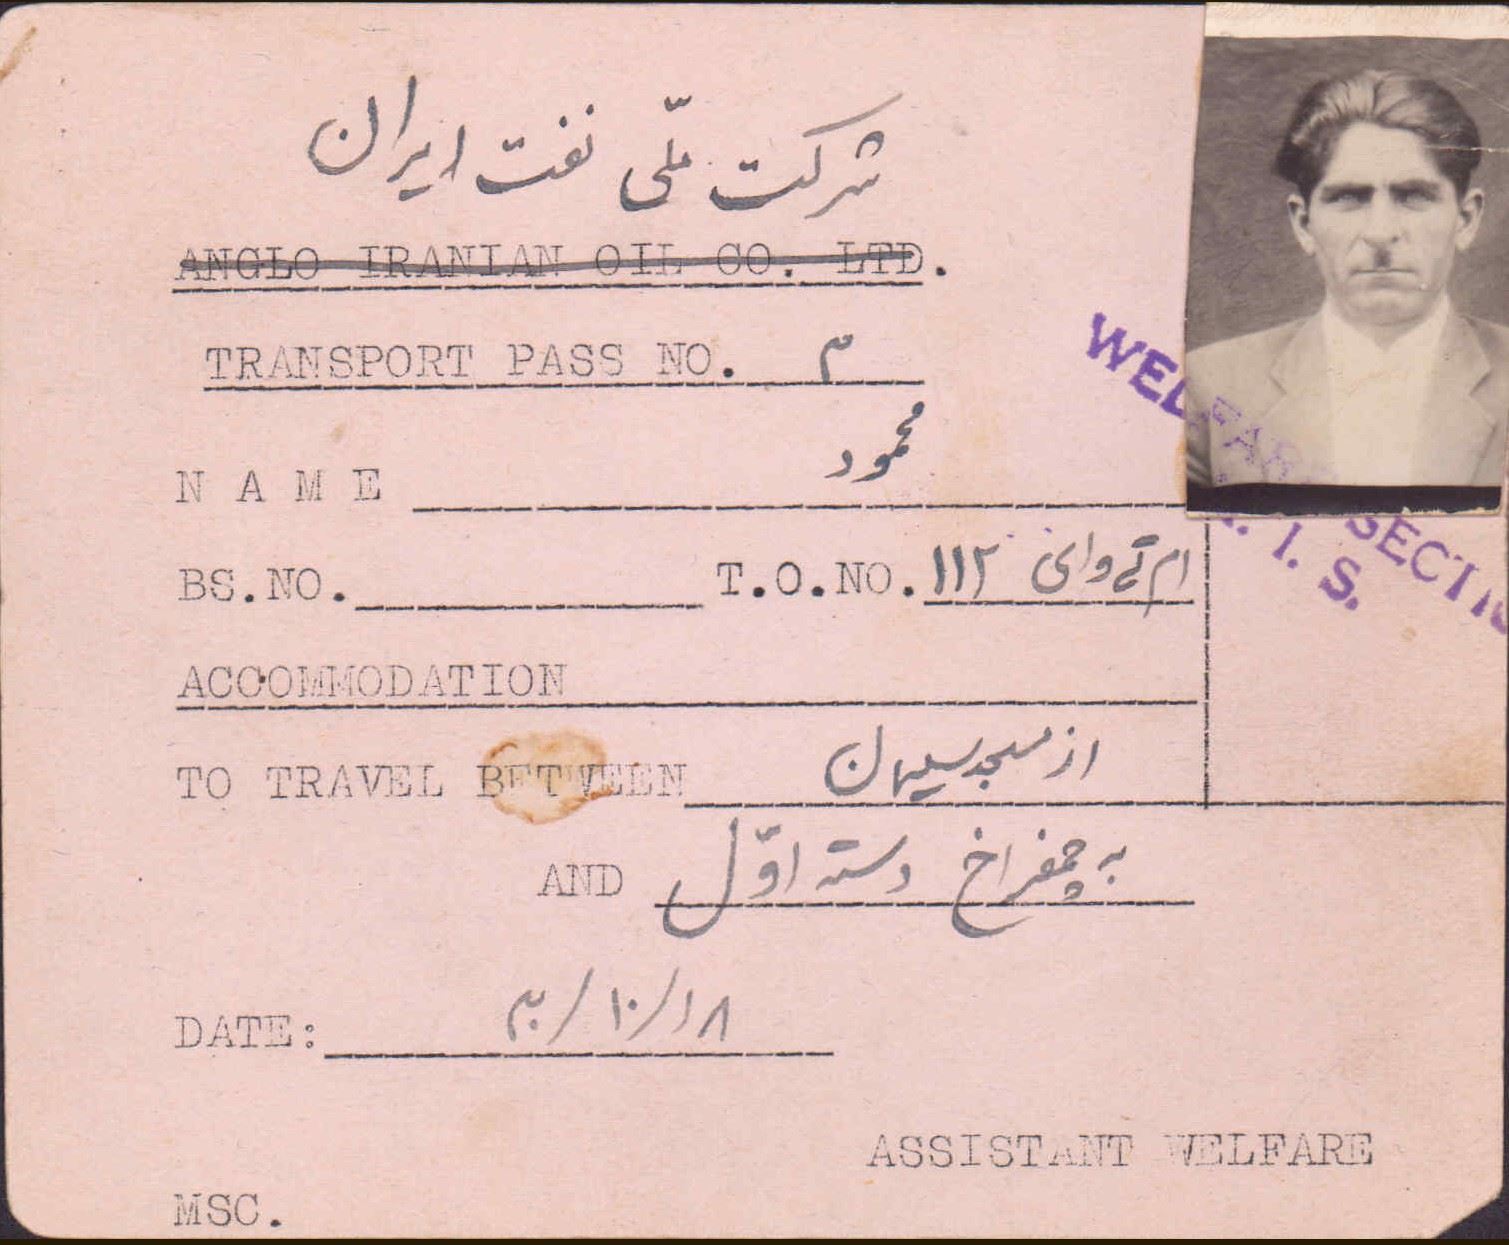 شرکت ملّی نفت ایران
ANGLO IRANIAN OIL CO. LTD.
TRANSPORT PASS NO. ۳
NAME محمود
BS.NO. T.O.NO. ام تے وای ۱۱۲
ACCOMMODATION
TO TRAVEL BETWEEN از مسجد سلیمان
AND به چمفراخ دسته اوّل
DATE: ۳۰/۱۰/۱۸
ASSISTANT WELFARE
MSC.
WELFARE SECTIO
. I. S.